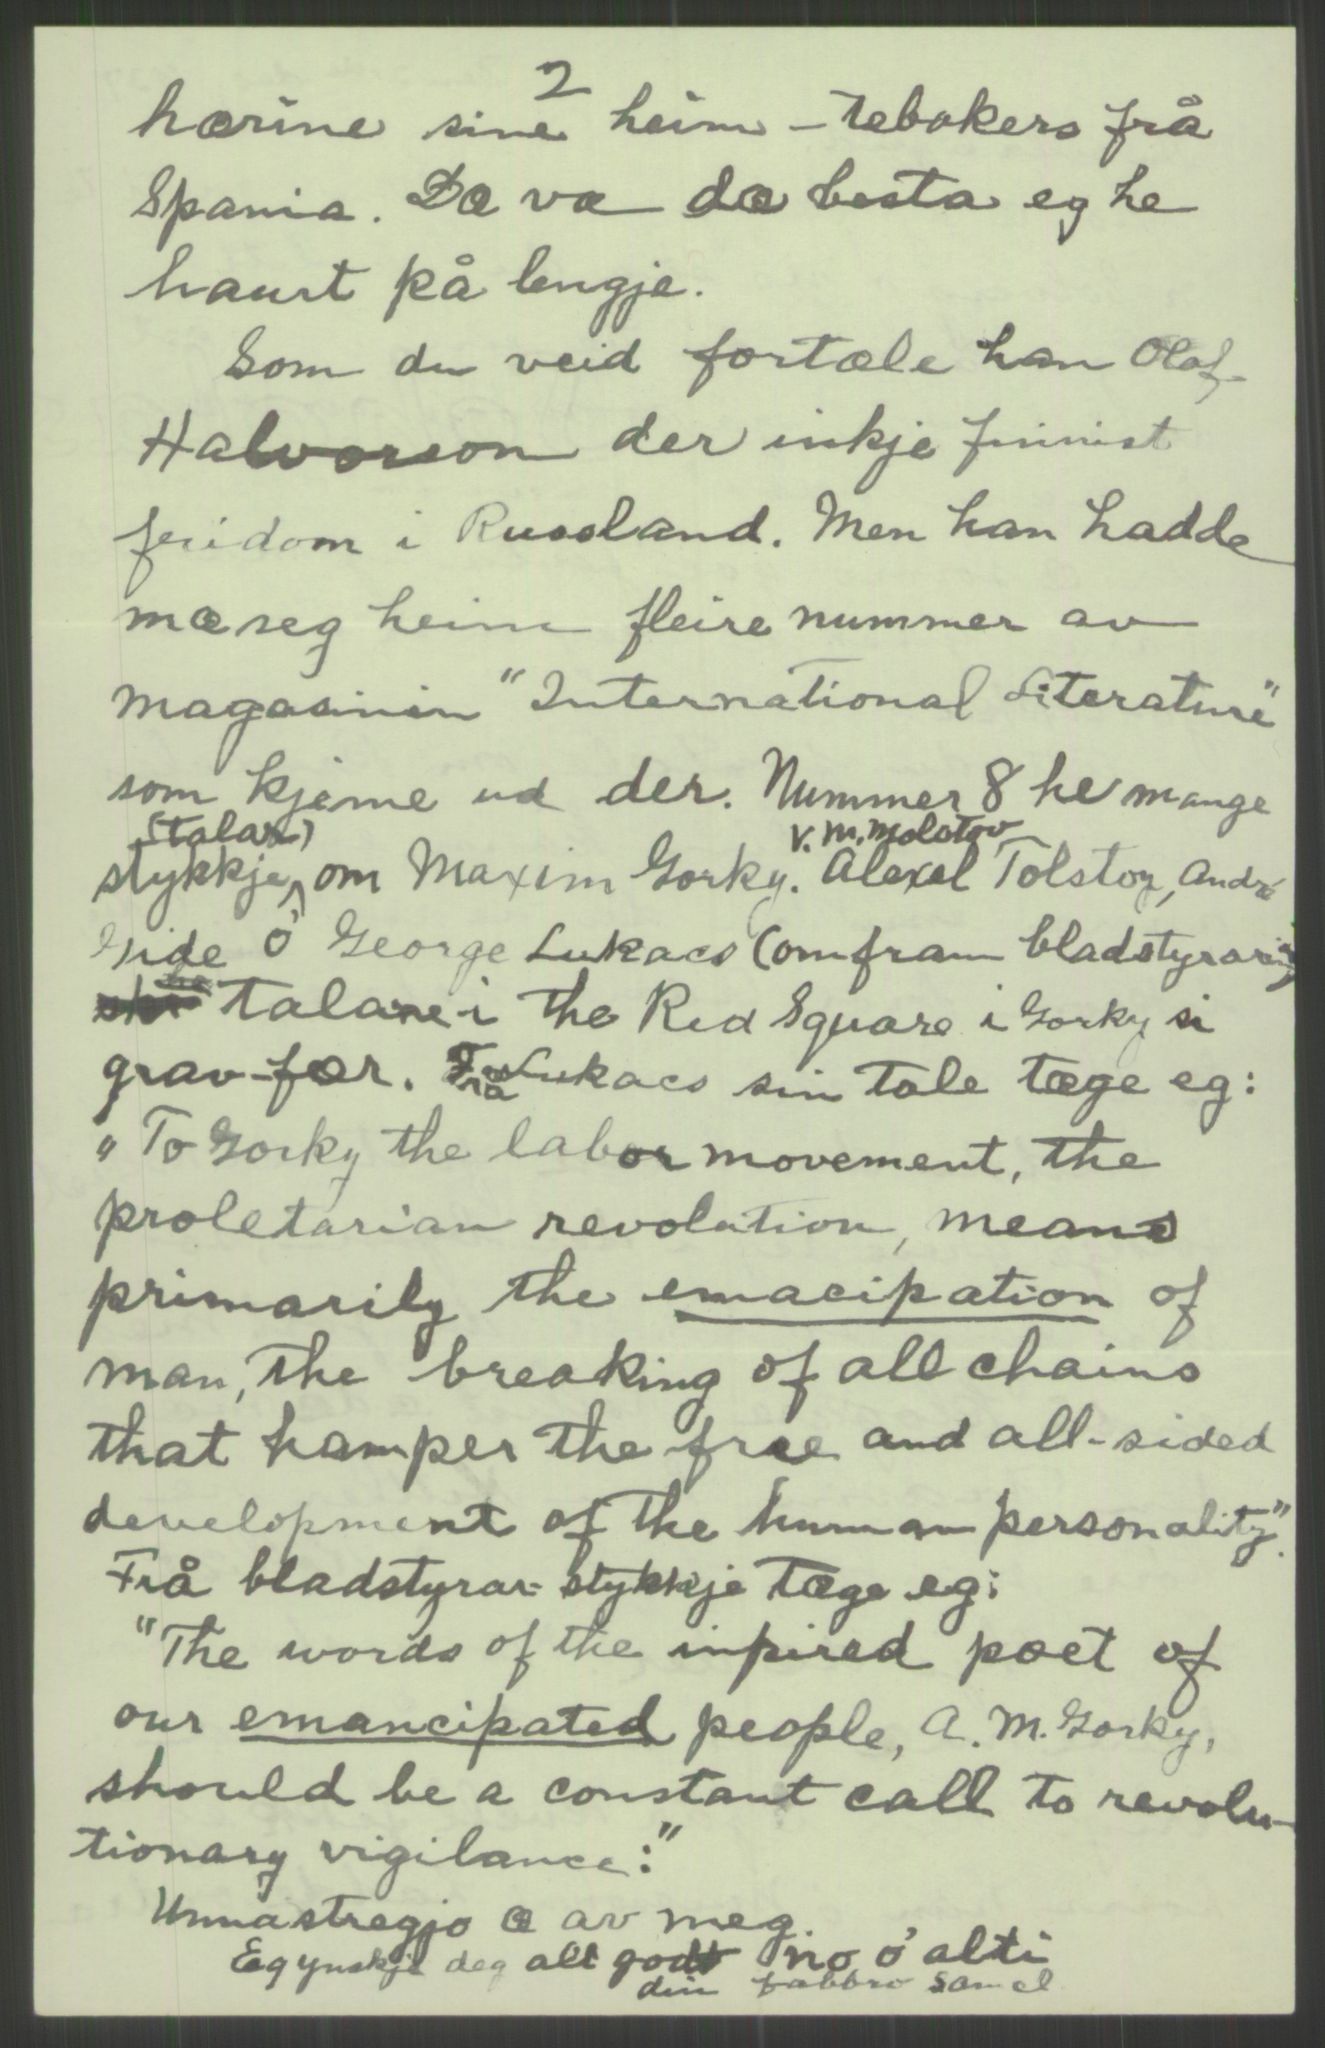 2
hærine sine heim-tebakers frå
Spania. Dæ va dæ besta eg he
haurt på lengje.
Som du veid fortæle han Olaf-
Halvorson der inkje finnist
fridom i Russland. Men han hadde
mæ seg heim fleire nummer av
magasinin "International Literature"
som kjeme ud der. Nummer 8 he mange
(talar) V. M. Molotov
stykkje, om Maxim Gorky. Alexel Tolstoy, André
Gide ó George Lukacs (omfram bladstyraring)
he talare i the Red Square i Gorky si
grav-fær. Frå Lukacs sin tale tæge eg:
"To Gorky the labor movement, the
proletarian revolution, means
primarily the emacipation of
man, the breaking of all chains
that hamper the free and all-sided
development of the human personality".
Frå bladstyrar-stykkje tæge eg:
"The words of the inpired poet of
our emancipated people, A. M. Gorky,
should be a constant call to revolu-
tionary vigilance:"
Unnastregjo æ av meg.
Eg ynskje deg alt godt no ó alti
din fabbro Samel